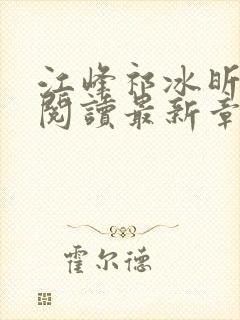 江峰祁冰昕
閱讀最新章
霍尔德